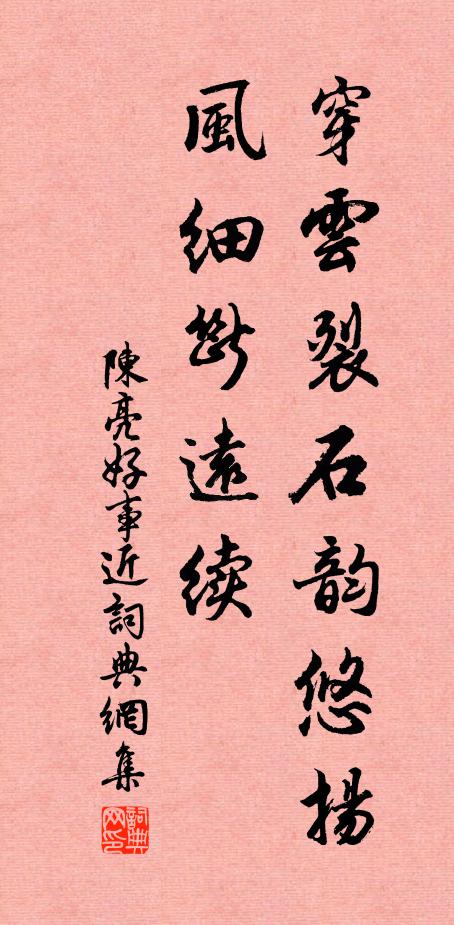 穿雲裂石韵悠揚
風细斷遠续
陳亮好事近詞典網集
詞典网印